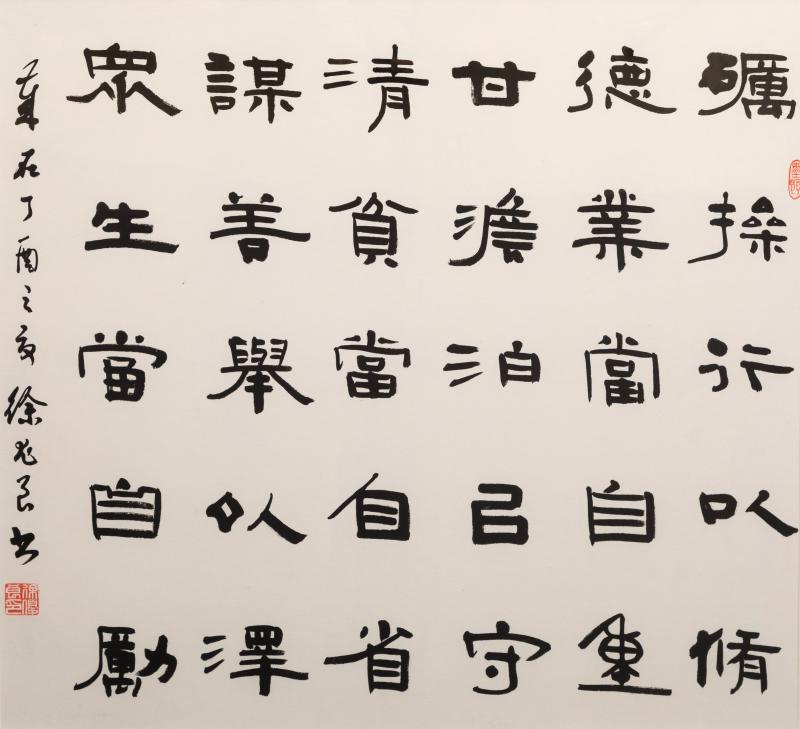 礪操行以脩
德業當自重
甘澹泊㠯守
清貧當自省
謀善舉以澤
眾生當自勵
歲在丁酉之夏徐兆良書